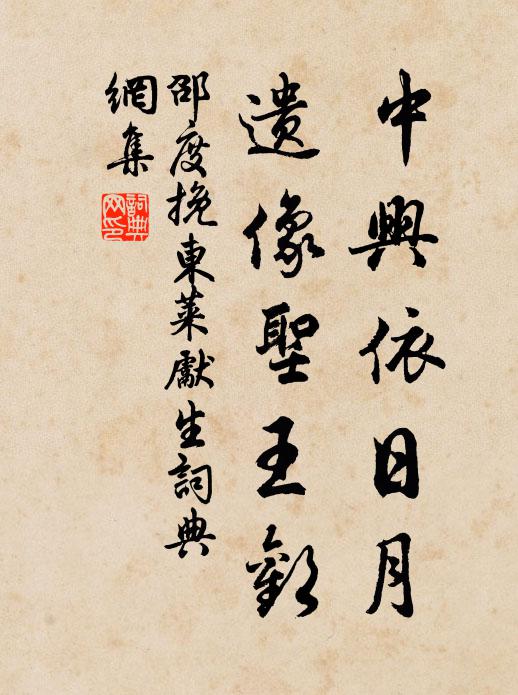 中興依日月
遺像聖王
邵度挽東萊獻生詞典
網集
詞典
网印